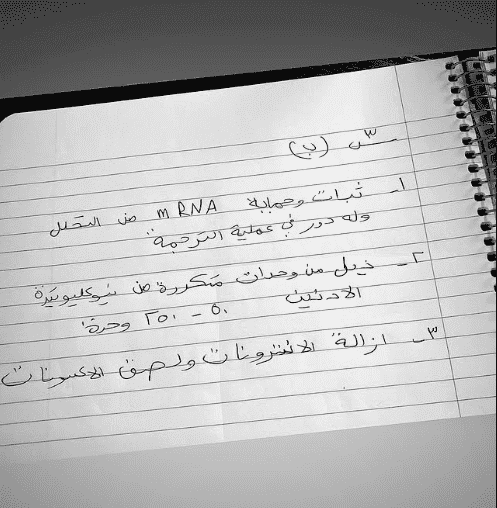 س٣ (ب)
١- ثبات وحماية mRNA من التحلل
وله دور في عملية الترجمة
٢- ذيل من وحدات متكررة من نيوكليوتيدة
الادنين ٥٠ - ٢٥٠ وحدة
٣- ازالة الانترونات ولصق الاكسونات